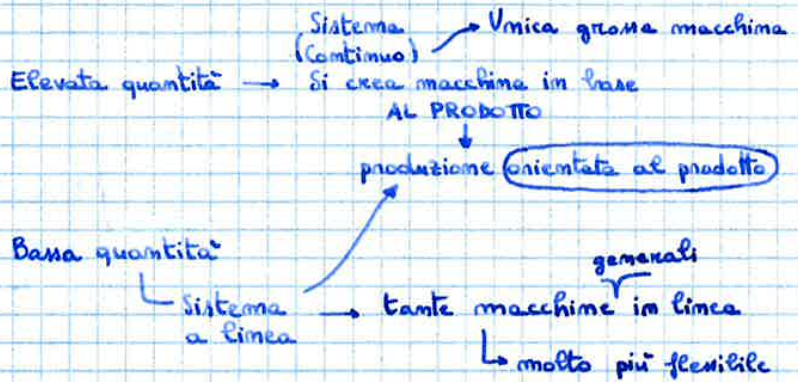 Sistema → Unica grossa macchina
(Continuo)
Elevata quantità → Si crea macchina in base
AL PRODOTTO
↓
produzione orientata al prodotto
Bassa quantità
generali
Sistema → tante macchine in linea
a linea
↳ molto più flessibile